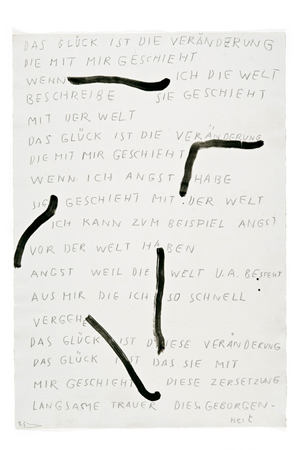 DAS GLÜCK IST DIE VERÄNDERUNG
DIE MIT MIR GESCHIEHT
WENN ICH DIE WELT
BESCHREIBE SIE GESCHIEHT
MIT DER WELT
DAS GLÜCK IST DIE VERÄNDERUNG
DIE MIT MIR GESCHIEHT
WENN ICH ANGST HABE
SIE GESCHIEHT MIT DER WELT
ICH KANN ZUM BEISPIEL ANGST
VOR DER WELT HABEN
ANGST WEIL DIE WELT U.A. BESTEHT
AUS MIR DIE ICH SO SCHNELL
VERGEHE
DAS GLÜCK IST DIESE VERÄNDERUNG
DAS GLÜCK IST DAS SIE MIT
MIR GESCHIEHT DIESE ZERSETZUNG
LANGSAME TRAUER DIESE GEBORGEN-
HEIT